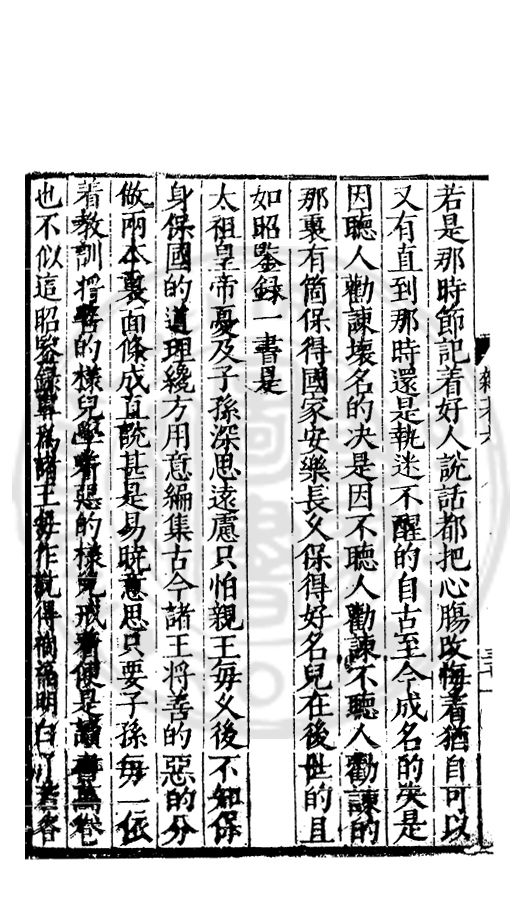 若是那時節記着好人說話都把心腸改悔着猶自可以
又有直到那時還是執迷不醒的自古至今成名的決是
因聽人勸諫壞名的决是因不聽人勸諫不聽人勸諫的
那裏有箇保得國家安樂長久保得好名兒在後世的且
如昭鍳録一書是
太祖皇帝憂及子孫深思遠慮只怕親王每久後不知保
身保國的道理纔方用意編集古今諸王將善的惡的分
做兩本裏面條成直說甚是易曉意思只要子孫每一依
着教訓將善的樣兒學着惡的樣兒戒着便是讀書萬卷
也不似這昭鍳録專爲諸王每作說得禍福明白了若各